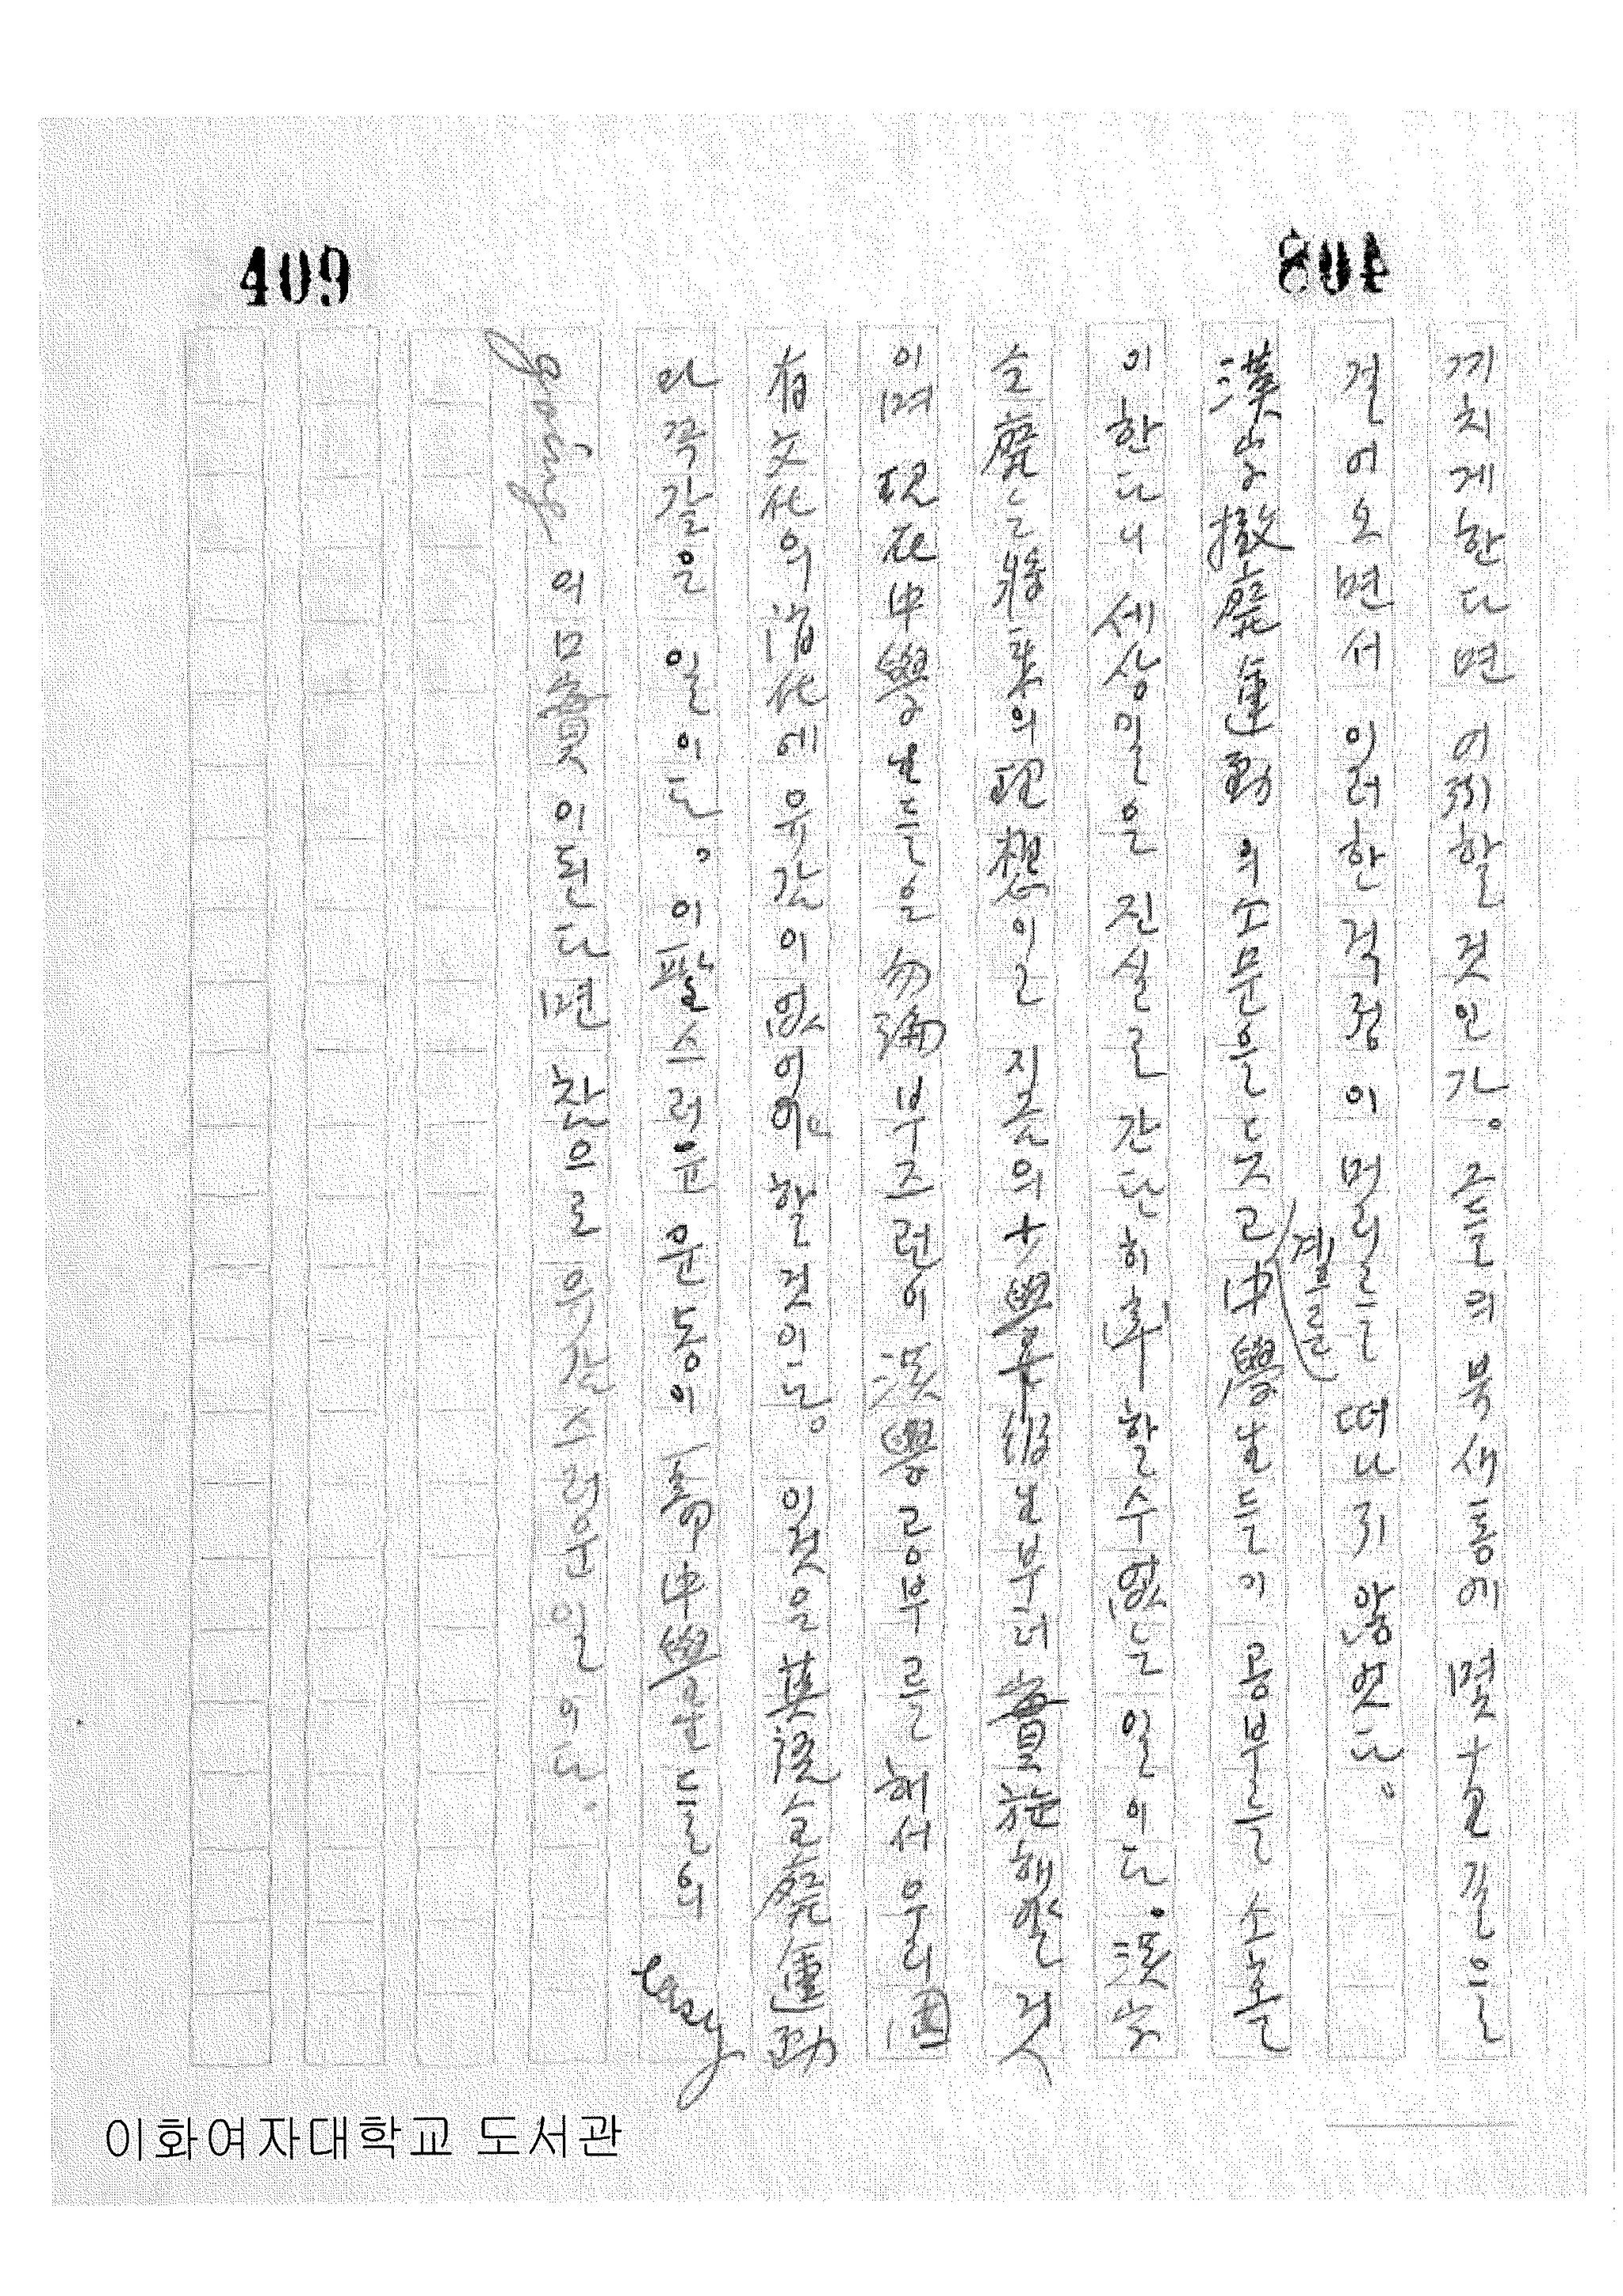 409
408
끼치게 한다면 어찌할 것인가. 그들의 북새통에 몇十로 길을
걸어오면서 이러한 걱정이 머리를 떠나지 않었다.
겨를
漢字撤廢運動의 소문을 듯고 中學生들이 공부를 소홀
이 한다니 세상일은 진실로 간단히 할수없는 일이다. 漢字
全廢는 將來의 理想이고 지금의 小學 生부터 實施해야할 것
이며 現在 中學生들은 勿論 부즈런이 漢學공부를 해서 우리 固
有文化의 消化에 유감이 없어야 할것이다. 이것을 其後 全廢運動
과 꼭같은 일이다. 이 팔스러운 운동이 高中學生들의 easy
going의 口實이 된다면 참으로 유감스러운 일이다.
이화여자대학교 도서관